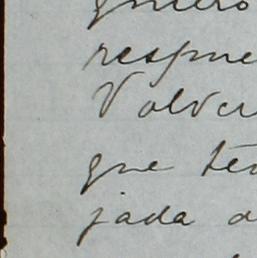 quiero
respue
Volver
que ten
jada a